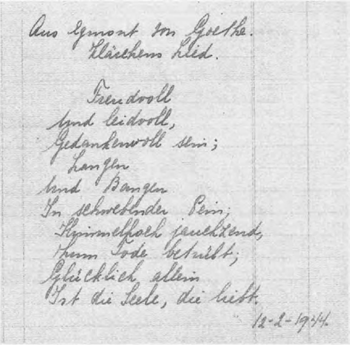 Aus Egmont von Goethe.
Klärchens Lied.
Freudvoll
Und leidvoll,
Gedankenvoll sein;
Langen
Und Bangen
In schwebender Pein;
Himmelhoch jauchzend,
Zum Tode betrübt;
Glücklich allein
Ist die Seele, die liebt.
12-2-1944.